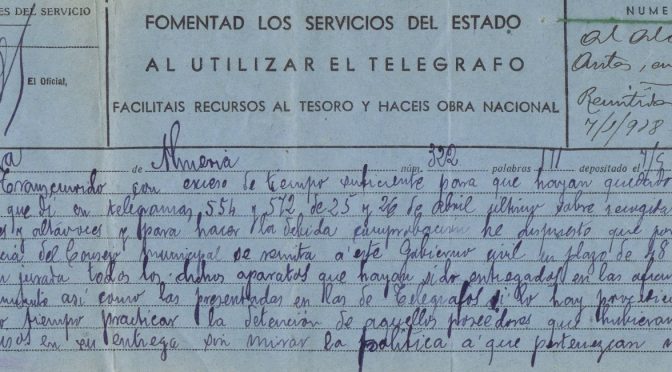 ES DEL SERVICIO
El Oficial,
FOMENTAD LOS SERVICIOS DEL ESTADO
AL UTILIZAR EL TELEGRAFO
FACILITAIS RECURSOS AL TESORO Y HACEIS OBRA NACIONAL
NUME
al Alc
Antas, en
Remitido
7/5/938
a de Almeria núm. 322 palabras 171 depositado el 7/5
Transcurrido con exceso de tiempo suficiente para que hayan quedado
que di en telegramas 554 y 572 de 25 y 26 de abril último sobre recogida
es y altavoces y para hacer la debida comprobacion he dispuesto que por
cia del Consejo municipal se remita a este Gobierno civil en plazo de 48
n jurada todos los dichos aparatos que hayan sido entregados en las
así como las presentadas en las de Telegrafos si lo hay
o tiempo practicar la detención de aquellos poseedores que hubieran
en su entrega sin mirar la politica a que pertenezcan